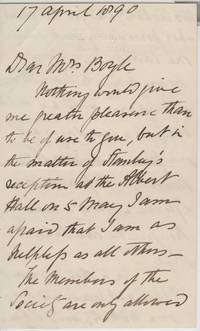 17 April 1890
Dear Mrs Boyle
Nothing would give
me greater pleasure than
to be of use to you, but in
the matter of Stanley's
reception at the Albert
Hall on 5 May I am
afraid that I am as
helpless as all others –
The Members of the
Society are only allowed